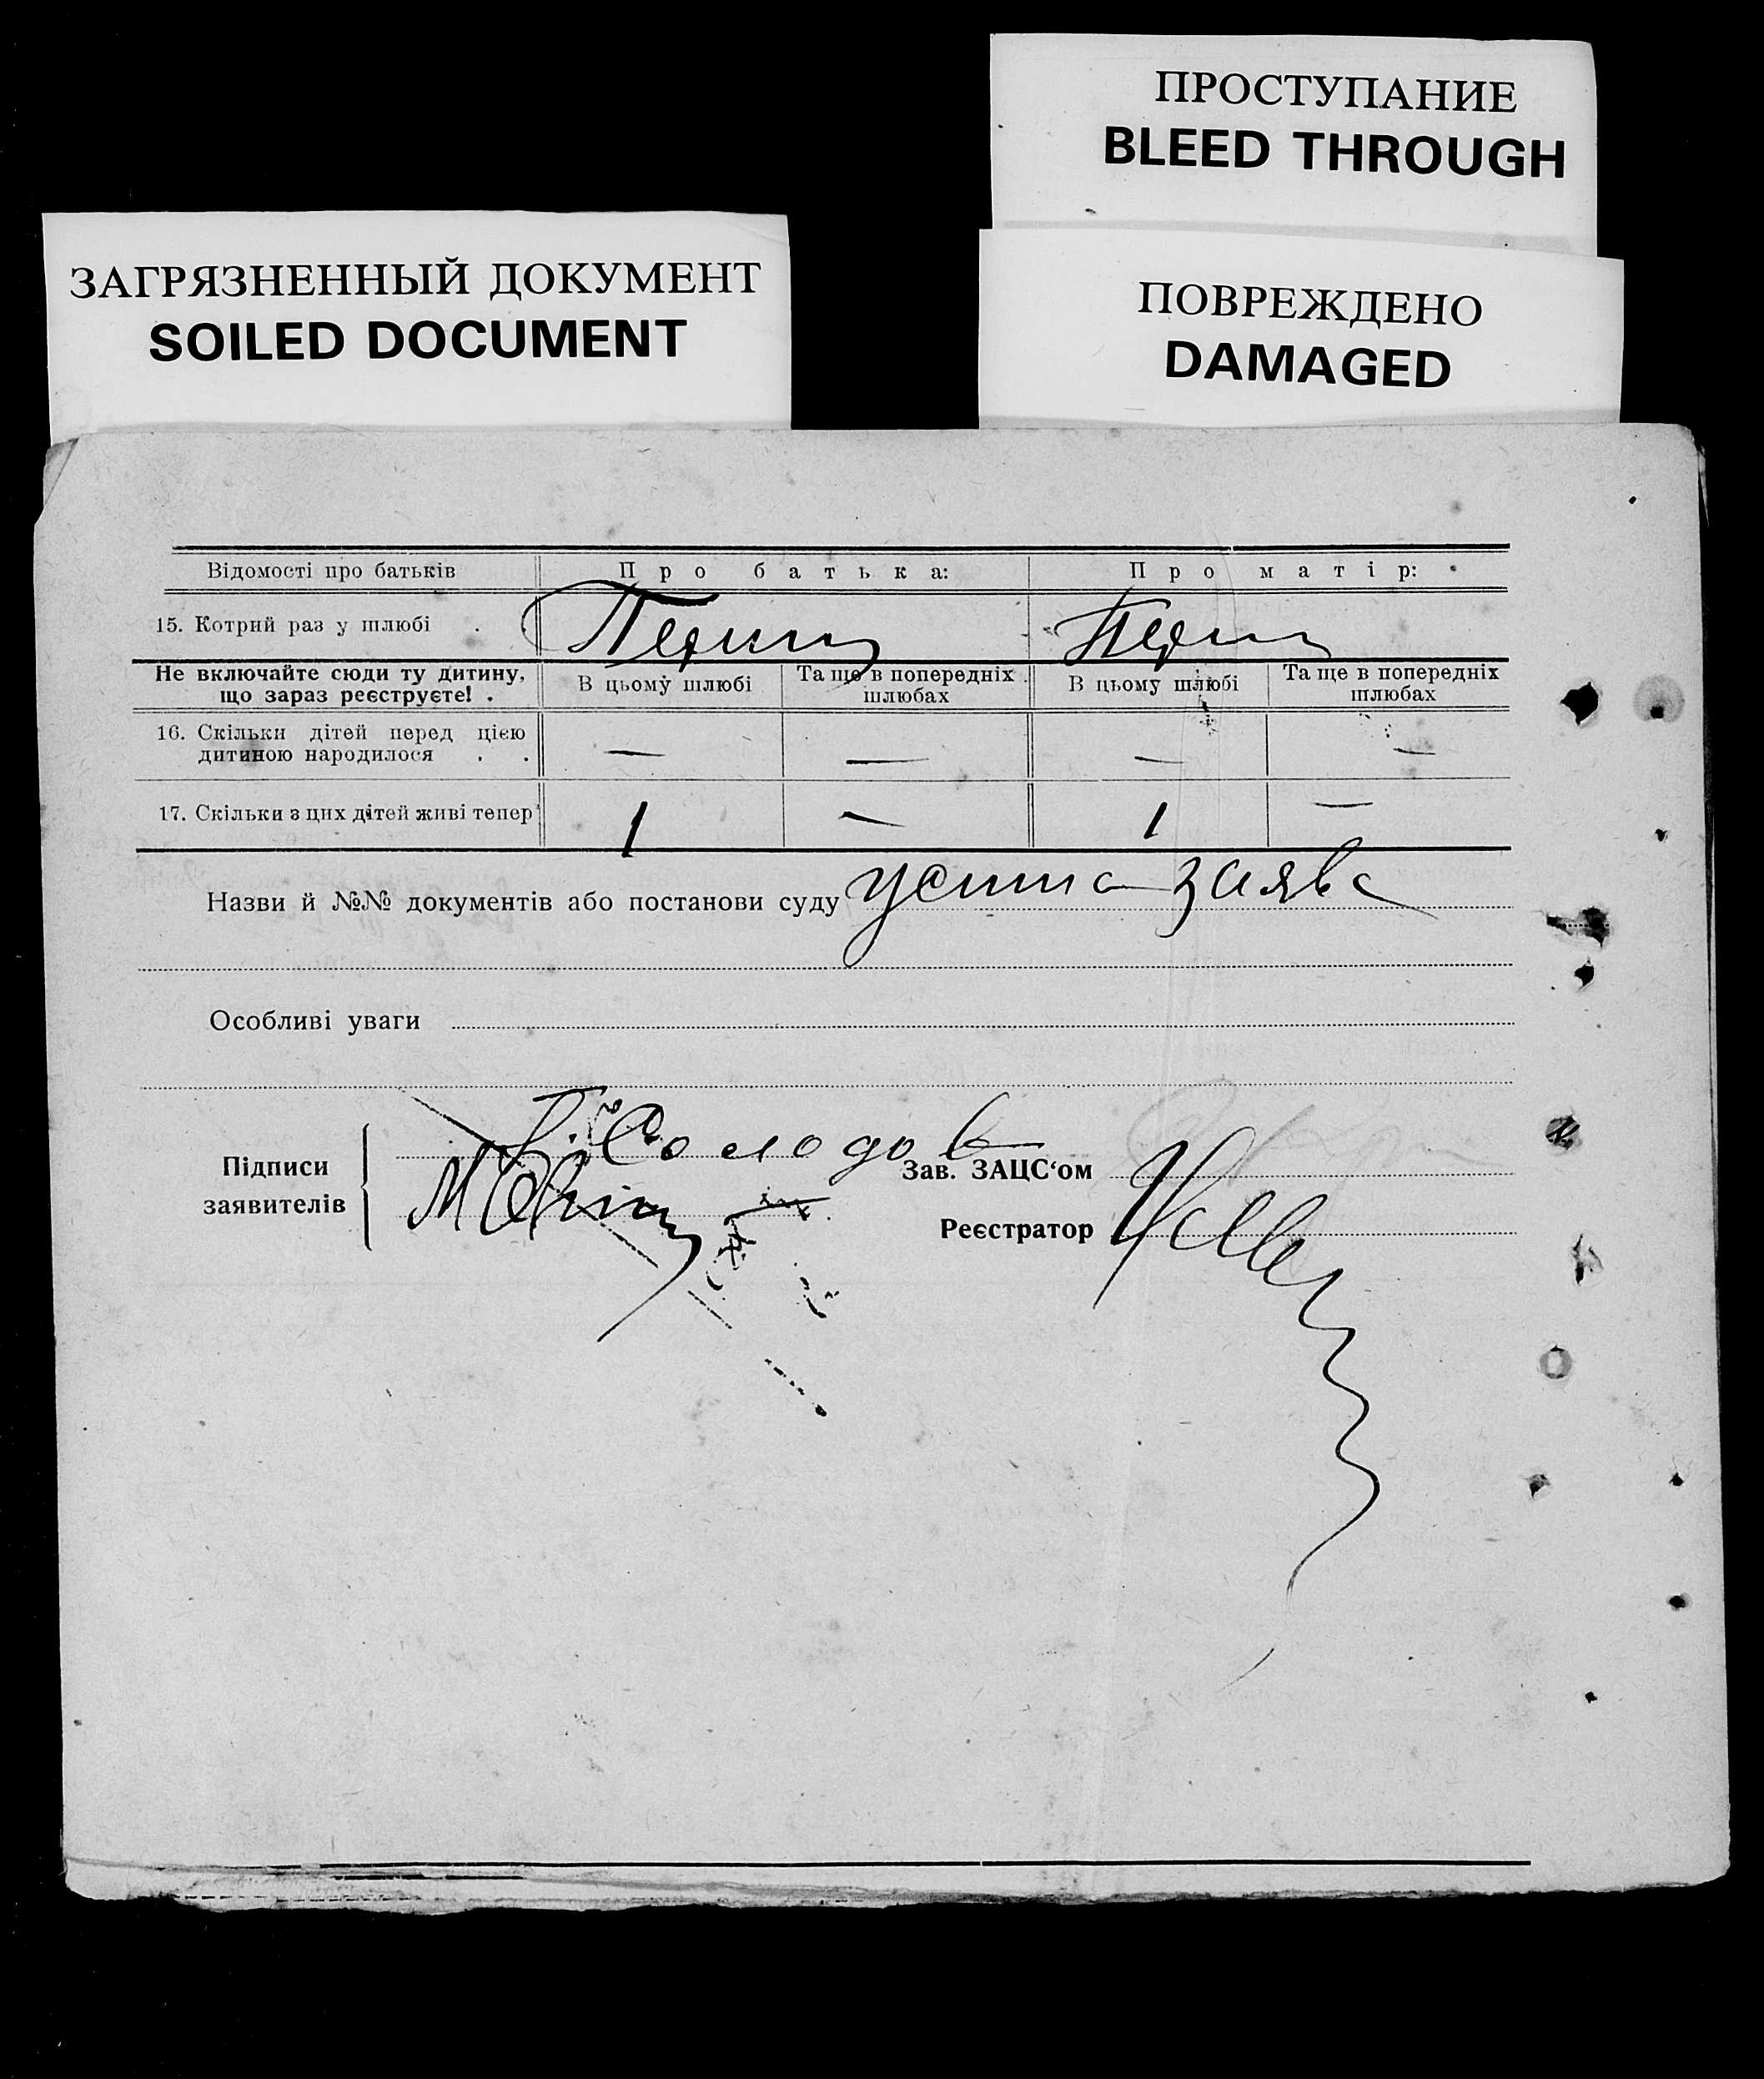 ПРОСТУПАНИЕ
BLEED THROUGH
ЗАГРЯЗНЕННЫЙ ДОКУМЕНТ
SOILED DOCUMENT
ПОВРЕЖДЕНО
DAMAGED
Відомості про батьків Про батька: Про матір:
15. Котрий раз у шлюбі . .
Не включайте сюди ту дитину, що зараз реєструєте! . В цьому шлюбі Та ще в попередніх шлюбах В цьому шлюбі Та ще в попередніх шлюбах
16. Скільки дітей перед цією
дитиною народилося . . — — — —
17. Скільки з цих дітей живі тепер 1 — 1 —
Назви й №№ документів або постанови суду усна заява
Особливі уваги
Солодов
Підписи
заявителів
Зав. ЗАЦС‘ом
Реєстратор